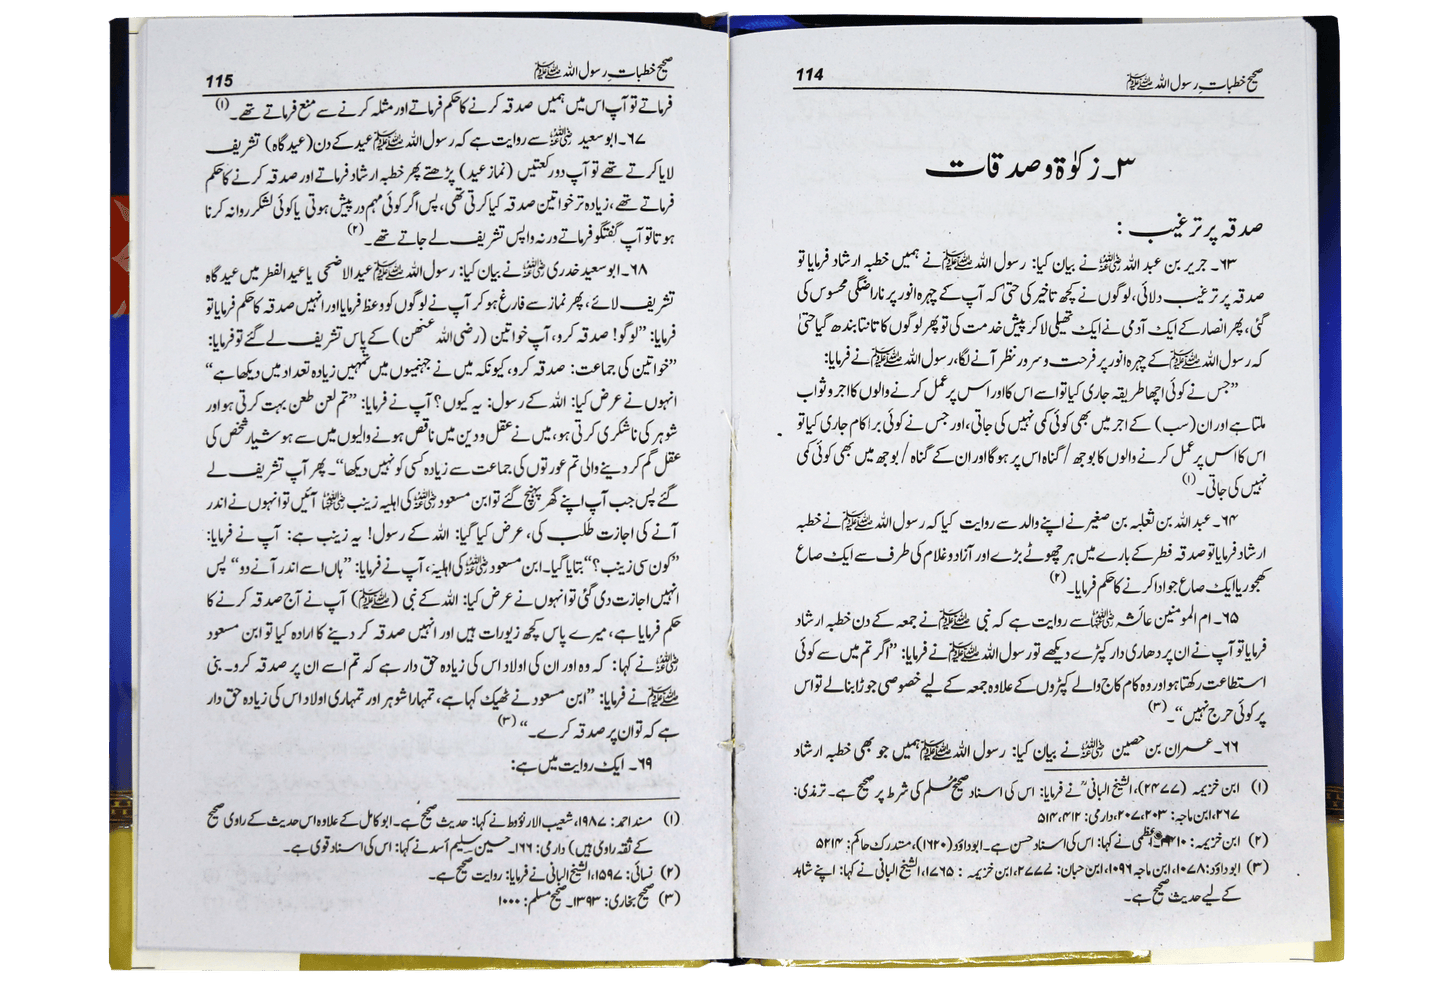 صحیح خطبات رسول اللہ ﷺ 114
۳۔ زکوٰۃ و صدقات
صدقہ پر ترغیب :
۶۳۔ جریر بن عبد اللہ رضی اللہ عنہ نے بیان کیا: رسول اللہ ﷺ نے ہمیں خطبہ ارشاد فرمایا تو
صدقہ پر ترغیب دلائی، لوگوں نے کچھ تاخیر کی حتیٰ کہ آپ کے چہرہ انور پر ناراضگی محسوس کی
گئی، پھر انصار کے ایک آدمی نے ایک تھیلی لا کر پیش خدمت کی تو پھر لوگوں کا تانتا بندھ گیا حتیٰ
کہ رسول اللہ ﷺ کے چہرہ انور پر فرحت و سرور نظر آنے لگا، رسول اللہ ﷺ نے فرمایا:
”جس نے کوئی اچھا طریقہ جاری کیا تو اسے اس کا اور اس پر عمل کرنے والوں کا اجر و ثواب
ملتا ہے اور ان (سب) کے اجر میں بھی کوئی کمی نہیں کی جاتی، اور جس نے کوئی برا کام جاری کیا تو
اس کا اس پر عمل کرنے والوں کا بوجھ / گناہ اس پر ہوگا اور ان کے گناہ / بوجھ میں بھی کوئی کمی
نہیں کی جاتی۔ (۱)
۶۴۔ عبد اللہ بن ثعلبہ بن صغیر نے اپنے والد سے روایت کیا کہ رسول اللہ ﷺ نے خطبہ
ارشاد فرمایا تو صدقہ فطر کے بارے میں ہر چھوٹے بڑے اور آزاد و غلام کی طرف سے ایک صاع
کھجور یا ایک صاع جو ادا کرنے کا حکم فرمایا۔ (۲)
۶۵۔ ام المومنین عائشہ رضی اللہ عنہا سے روایت ہے کہ نبی ﷺ نے جمعہ کے دن خطبہ ارشاد
فرمایا تو آپ نے ان پر دھاری دار کپڑے دیکھے تو رسول اللہ ﷺ نے فرمایا: ”اگر تم میں سے کوئی
استطاعت رکھتا ہو اور وہ کام کاج والے کپڑوں کے علاوہ جمعہ کے لیے خصوصی جوڑا بنالے تو اس
پر کوئی حرج نہیں“۔ (۳)
۶۶۔ عمران بن حصین رضی اللہ عنہ نے بیان کیا: رسول اللہ ﷺ ہمیں جو بھی خطبہ ارشاد
(۱) ابن خزیمہ (۲۴۷۷)، الشیخ البانی نے فرمایا: اس کی اسناد صحیح مسلم کی شرط پر صحیح ہے۔ ترمذی:
۲۶۷، ابن ماجہ: ۲۰۳، ۲۰۷، دارمی: ۵۱۲، ۵۱۴
(۲) ابن خزیمہ: ۲۴۱۰، اعظمی نے کہا: اس کی اسناد حسن ہے۔ ابو داؤد (۱۶۲۰)، مستدرک حاکم: ۵۲۱۴
(۳) ابو داؤد: ۱۰۷۸، ابن ماجہ ۱۰۹۶، ابن حبان: ۲۷۷۷، ابن خزیمہ : ۱۷۶۵، الشیخ البانی نے کہا: اپنے شاہد
کے لیے حدیث صحیح ہے۔
صحیح خطبات رسول اللہ ﷺ 115
فرماتے تو آپ اس میں ہمیں صدقہ کرنے کا حکم فرماتے اور مثلہ کرنے سے منع فرماتے تھے۔ (۱)
۶۷۔ ابو سعید رضی اللہ عنہ سے روایت ہے کہ رسول اللہ ﷺ عید کے دن (عید گاہ) تشریف
لایا کرتے تھے تو آپ دو رکعتیں (نماز عید) پڑھتے پھر خطبہ ارشاد فرماتے اور صدقہ کرنے کا حکم
فرماتے تھے، زیادہ تر خواتین صدقہ کیا کرتی تھی، پس اگر کوئی مہم در پیش ہوتی یا کوئی لشکر روانہ کرنا
ہوتا تو آپ گفتگو فرماتے ورنہ واپس تشریف لے جاتے تھے۔ (۲)
۶۸۔ ابو سعید خدری رضی اللہ عنہ نے بیان کیا: رسول اللہ ﷺ عید الاضحی یا عید الفطر میں عید گاہ
تشریف لائے، پھر نماز سے فارغ ہو کر آپ نے لوگوں کو وعظ فرمایا اور انہیں صدقہ کا حکم فرمایا تو
فرمایا: ”لوگو! صدقہ کرو، آپ خواتین (رضی اللہ عنھن) کے پاس تشریف لے گئے تو فرمایا:
”خواتین کی جماعت: صدقہ کرو، کیونکہ میں نے جہنمیوں میں تمہیں زیادہ تعداد میں دیکھا ہے“
انہوں نے عرض کیا: اللہ کے رسول: یہ کیوں؟ آپ نے فرمایا: ”تم لعن طعن بہت کرتی ہو اور
شوہر کی ناشکری کرتی ہو، میں نے عقل و دین میں ناقص ہونے والیوں میں سے ہوشیار شخص کی
عقل گم کر دینے والی تم عورتوں کی جماعت سے زیادہ کسی کو نہیں دیکھا“۔ پھر آپ تشریف لے
گئے پس جب آپ اپنے گھر پہنچ گئے تو ابن مسعود رضی اللہ عنہ کی اہلیہ زینب رضی اللہ عنہا آئیں تو انہوں نے اندر
آنے کی اجازت طلب کی، عرض کیا گیا: اللہ کے رسول! یہ زینب ہے: آپ نے فرمایا:
”کون سی زینب؟“ بتایا گیا۔ ابن مسعود رضی اللہ عنہ کی اہلیہ، آپ نے فرمایا: ”ہاں اسے اندر آنے دو“ پس
انہیں اجازت دی گئی تو انہوں نے عرض کیا: اللہ کے نبی (ﷺ) آپ نے آج صدقہ کرنے کا
حکم فرمایا ہے، میرے پاس کچھ زیورات ہیں اور انہیں صدقہ کر دینے کا ارادہ کیا تو ابن مسعود
رضی اللہ عنہ نے کہا: کہ وہ اور ان کی اولاد اس کی زیادہ حق دار ہے کہ تم اسے ان پر صدقہ کرو۔ نبی
ﷺ نے فرمایا: ”ابن مسعود نے ٹھیک کہا ہے، تمہارا شوہر اور تمہاری اولاد اس کی زیادہ حق دار
ہے کہ تو ان پر صدقہ کرے۔“ (۳)
۶۹۔ ایک روایت میں ہے:
(۱) مسند احمد: ۱۹۸۷، شعیب الارنؤوط نے کہا: حدیث صحیح ہے۔ ابو کامل کے علاوہ اس حدیث کے راوی صحیح
کے ثقہ راوی ہیں) دارمی: ۱۶۶۔ حسین سلیم اسد نے کہا: اس کی اسناد قوی ہے۔
(۲) نسائی: ۱۵۹۷، الشیخ البانی نے فرمایا: روایت صحیح ہے۔
(۳) صحیح بخاری: ۱۳۹۳۔ صحیح مسلم: ۱۰۰۰